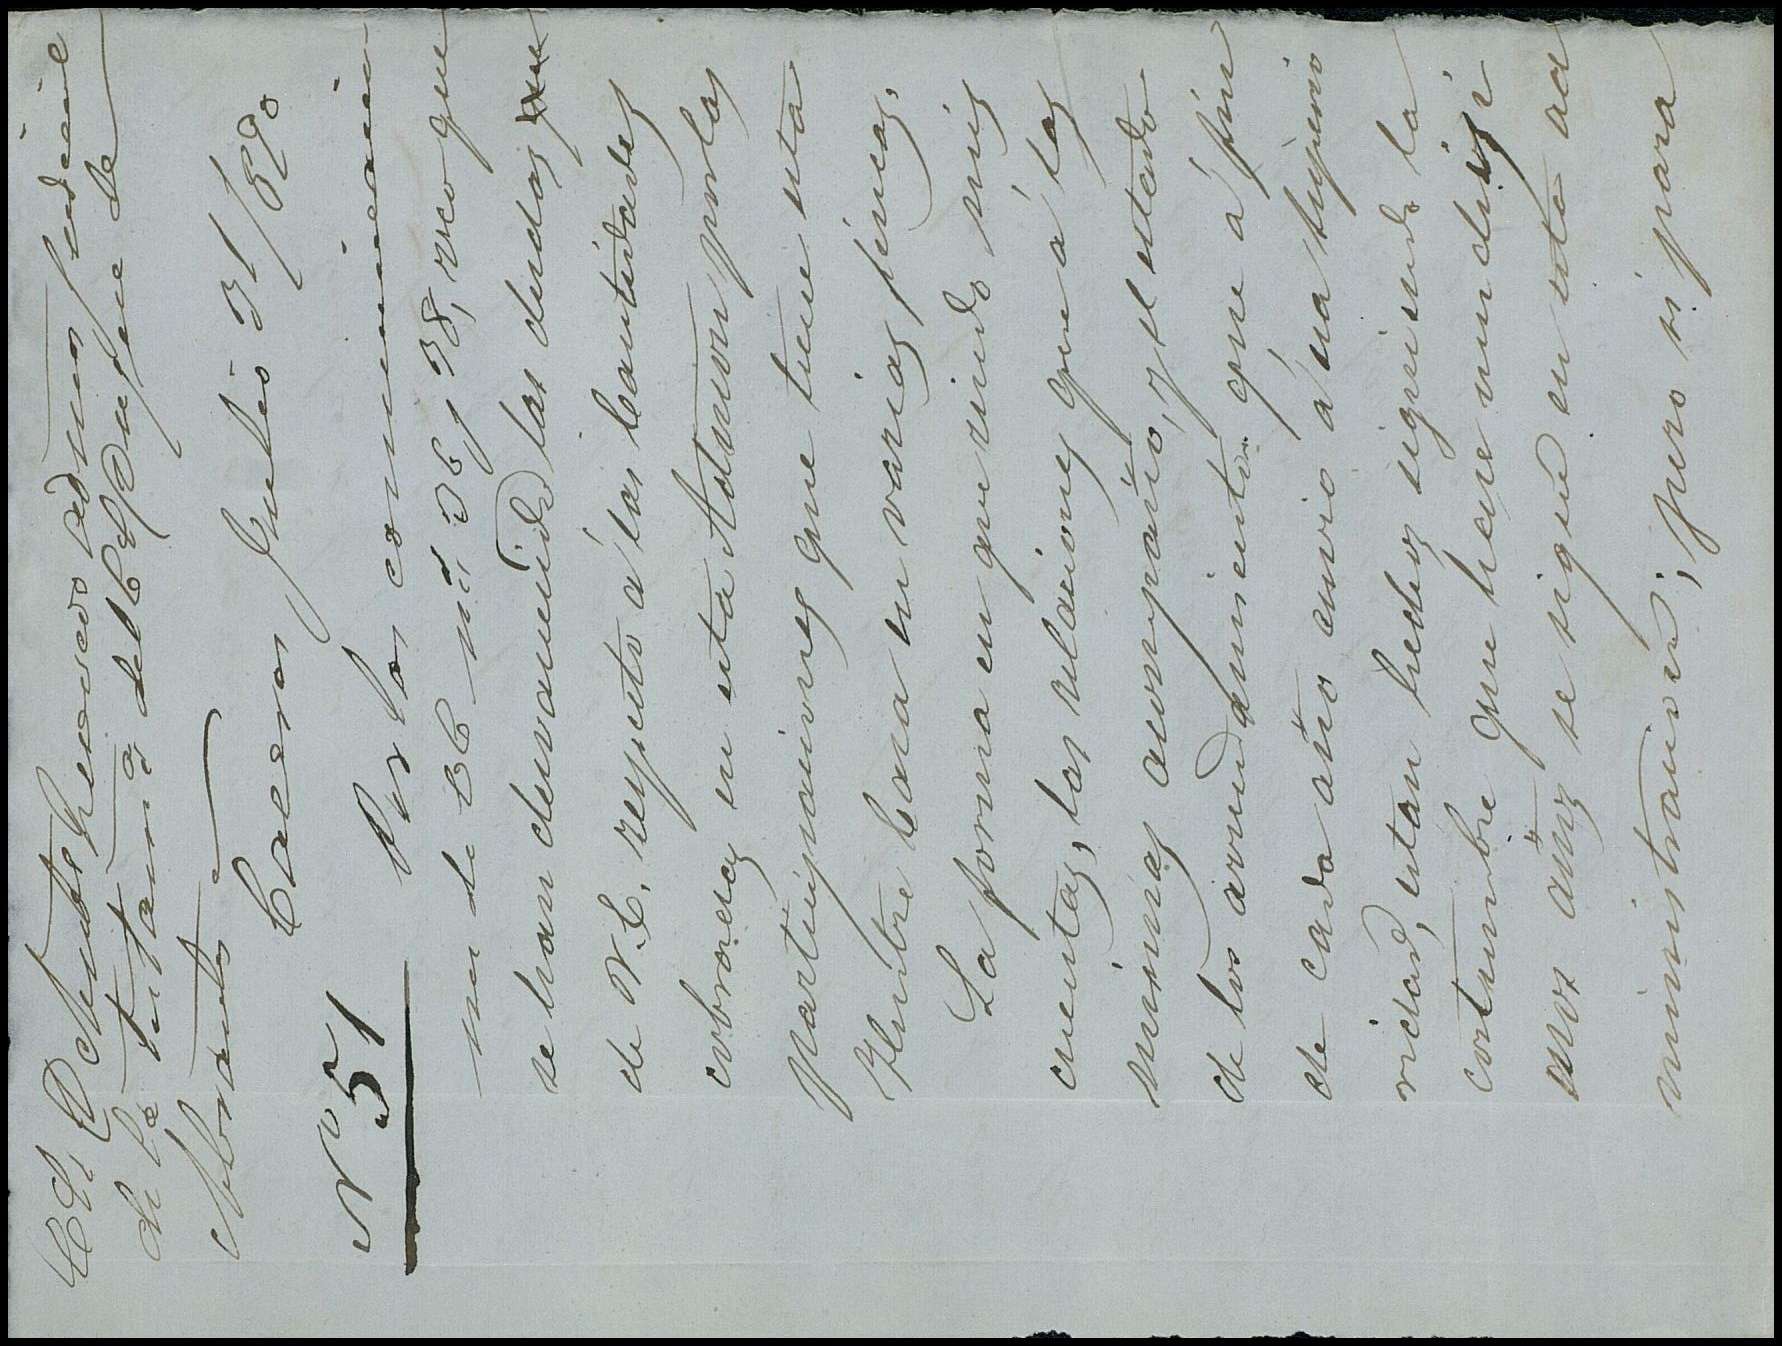 de la Testamª del E S Duque de
Abrantes
Caceres Julio 31/890
Nº 51
Por las comunicacio
nes de Vd nº 36 y 38, veo que
se han desvanecido las dudas
de V.E. respecto á las Cantidades
cobradas en esta Admºn por las
participaciones que tiene esta
Ilustre Casa en varias fincas,
La forma en que rindo mis
cuentas, las relaciones que á las
mismas acompaño, y el estado
de los arrendamientos que á fin
de cada año envio á esa superio
ridad, estan hechos siguiendo la
costumbre que hace muchisi
mos años se sigue en esta ad
ministración; pero si para